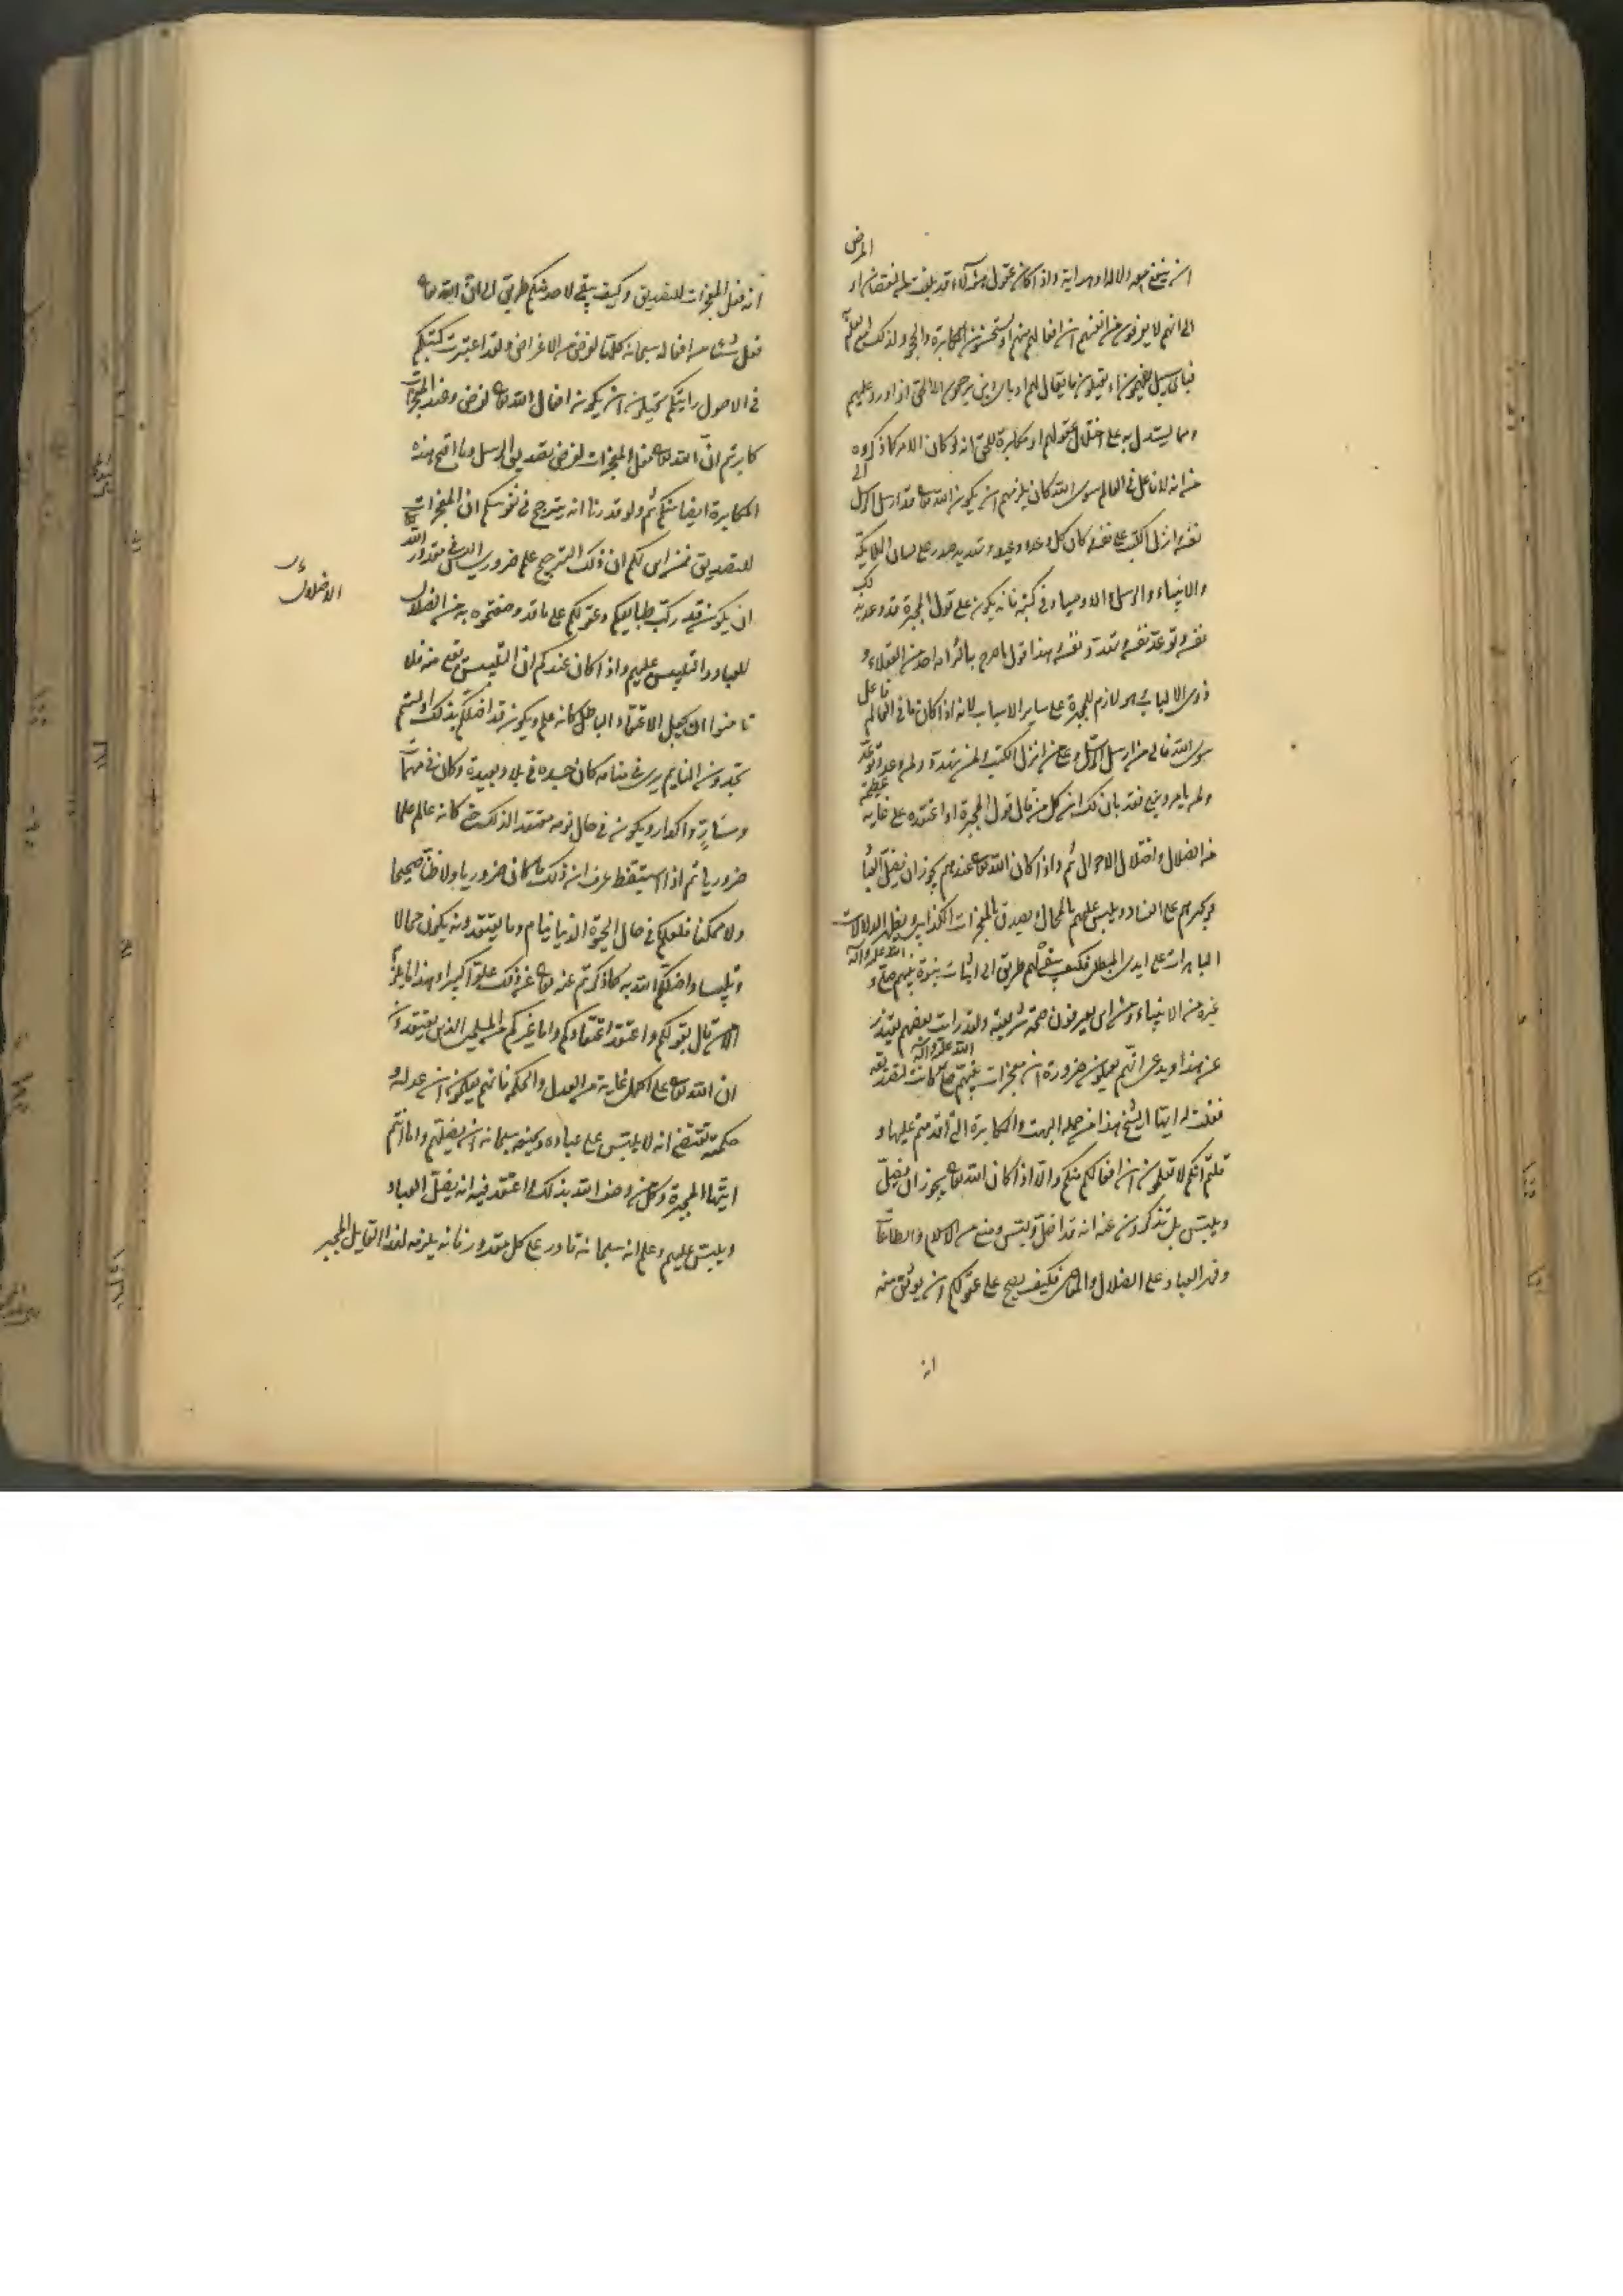 ان ينجع معه دلالة او هداية واذا كان عقول هؤلاء قد بلغت الى النقصان او المرض
الى انهم لا يعرفون من انفسهم ان افعالهم منهم او يستحسنون المكابرة والجحود لذلك مع العلم
فبأي سبيل يفهمون او يقبلون ما يقال لهم او باي دين يرجعون الى الحق اذا اورد عليهم
ومما يستدل به على اختلال عقولهم او مكابرة للحق انه لو كان الامر كما ذكروه
من انه لا فاعل في العالم سوى الله كان يلزمهم ان يكون الله تعالى قد ارسل الرسل الى
نفسه انزل الكتب على نفسه وكان كل وعد ووعيد وتهديد صدر على لسان الملائكة
والانبياء والرسل والاوصياء وفي كتبه فانه يكون على قول المجبرة قد وعد به
نفسه وتوعد نفسه وتهدد نفسه وهذا قول ما صرح بالتزامه احد من العقلاء و
ذوي الالباب وهو لازم للمجبرة على ساير الاسباب لانه اذا كان ما في العالم فاعل
سوى الله فالى من ارسل الرسل وعلى من انزل الكتب ولمن تهدد ولمن وعد وتوعد
ولمن يأمر وينهى فقد بان لك ان كل من قال قول المجبرة او اعتقده على غاية عظيمة
من الضلال واختلال الاحوال ثم واذا كان الله تعالى عندهم يجوز ان يضل العباد
ويجبرهم على الفساد ويلبس عليهم بالمحال ويصدق بالمعجزات الكذابين ويظهر الدلالات
الباهرات على ايدي المبطلين فكيف يبقى لهم طريق الى اثبات نبوة نبيهم صلى الله عليه وآله و
غيره من الانبياء ومن اي يعرفون صحة شريعته ولقد رايت بعضهم يعتذر
عن هذا ويدعي انهم يعلمون ضرورة ان معجزات نبيهم صلى الله عليه وآله كانت لتصديقه
فقلت له ايها الشيخ هذا من جملة البهت والمكابرة التي اقدمتم عليها و
قلتم انكم لا تعلمون ان افعالكم منكم والا اذا كان الله تعالى يجوز ان يضل
ويلبس بل تذكرون عنه انه قد اضل ولبس ومنع من الاسلام والطاعات
وقهر العباد على الضلال والمعاصي فكيف يصح على عقولكم ان يوثق منه
انه
انه فعل المعجزات للتصديق وكيف يبقى لاحد منكم طريق الى ان الله تعالى
فعل شيئا من افعاله سبحانه كلها لغرض من الاغراض ولقد اعتبرت كتبكم
في الاصول رايتكم تحيلون ان يكون افعال الله تعالى لغرض وعند المعجزات
كابرتم ان الله تعالى فعل المعجزات لغرض تصديق الرسل وما اقبح هذه
المكابرة ايضا منكم ثم ولو قدرنا انه يترجح في نفوسكم ان المعجزات
للتصديق فمن اين لكم ان ذلك الترجيح علم ضروري اليس في مقدور الله
ان يكون قد ركب طبايعكم وعقولكم على ما قد وصفتموه به من الضلال
الاضلال
للعباد والتلبيس عليهم واذا كان عندكم ان التلبيس يقع منه فلا
تامنوا ان يجعل الاعتقاد الباطل كانه علم ويكون قد اضلكم بذلك او لستم
تجدون النايم يرى في منامه كان جسده في بلاد بعيدة وكان في مهمات
ومسار واكدار ويكون في حال نومه معتقد الذلك حتى كانه عالم علما
ضروريا ثم اذا استيقظ عرف ان ذلك ما كان ضروريا ولا ظنا صحيحا
ولا ممكنا فلعلكم في حال الحيوة الدنيا نيام وما يعتقدونه يكون محالا
وتلبيسا واضلكم الله به كما ذكرتم عنه تعالى عن ذلك علوا كبيرا وهذا ما يلزم
الا من قال بقولكم واعتقد اعتقادكم واما غيركم من المسلمين الذين يعتقدون
ان الله تعالى على اكمل غاية من العدل والحكم فانهم يعلمون ان عدله و
حكمته تقتضي انه لا يلبس على عباده ويمنعه سبحانه ان يضلهم واما انتم
ايتها المجبرة وكل من وصف الله بذلك او اعتقد فيه انه يضل العباد
ويلبس عليهم وعلم انه سبحانه قادر على كل مقدور فانه يلزمه لهذا القايل المجبر